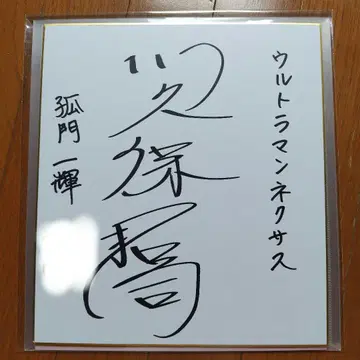 ウルトラマンネクサス
川久保拓司
孤門一輝